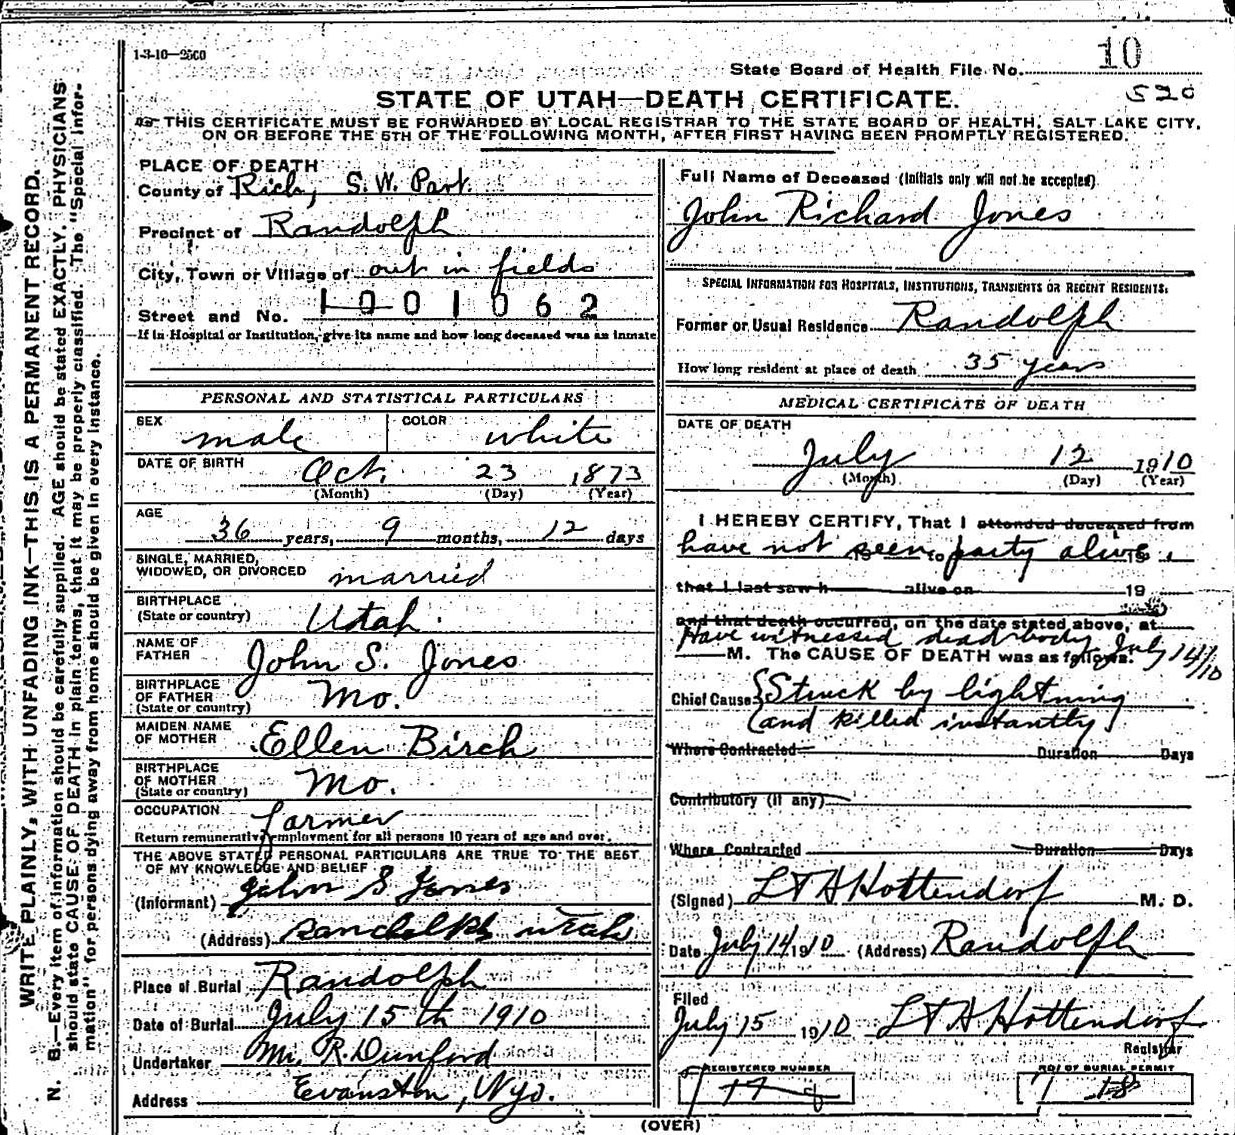 1-3-10—2500
State Board of Health File No. 10
520
STATE OF UTAH—DEATH CERTIFICATE.
THIS CERTIFICATE MUST BE FORWARDED BY LOCAL REGISTRAR TO THE STATE BOARD OF HEALTH, SALT LAKE CITY,
ON OR BEFORE THE 5TH OF THE FOLLOWING MONTH, AFTER FIRST HAVING BEEN PROMPTLY REGISTERED.
WRITE PLAINLY, WITH UNFADING INK—THIS IS A PERMANENT RECORD.
N. B.—Every item of information should be carefully supplied. AGE should be stated EXACTLY. PHYSICIANS
should state CAUSE OF DEATH in plain terms, that it may be properly classified. The "Special Infor-
mation" for persons dying away from home should be given in every instance.
PLACE OF DEATH
County of Rich, S. W. Part.
Precinct of Randolph
City, Town or Village of out in fields
Street and No. 1001062
If in Hospital or Institution, give its name and how long deceased was an inmate
PERSONAL AND STATISTICAL PARTICULARS
SEX male COLOR white
DATE OF BIRTH Oct. 23 1873
(Month) (Day) (Year)
AGE
36 years, 9 months, 12 days
SINGLE, MARRIED,
WIDOWED, OR DIVORCED married
BIRTHPLACE
(State or country) Utah.
NAME OF
FATHER John S. Jones
BIRTHPLACE
OF FATHER
(State or country) Mo.
MAIDEN NAME
OF MOTHER Ellen Birch
BIRTHPLACE
OF MOTHER
(State or country) Mo.
OCCUPATION farmer
Return remunerative employment for all persons 10 years of age and over.
THE ABOVE STATED PERSONAL PARTICULARS ARE TRUE TO THE BEST
OF MY KNOWLEDGE AND BELIEF
(Informant) John S Jones
(Address) Randolph Utah
Place of Burial Randolph
Date of Burial July 15th 1910
Undertaker Mr. R. Dunford
Address Evanston, Wyo.
Full Name of Deceased (Initials only will not be accepted)
John Richard Jones
SPECIAL INFORMATION FOR HOSPITALS, INSTITUTIONS, TRANSIENTS OR RECENT RESIDENTS:
Former or Usual Residence Randolph
How long resident at place of death 35 years
MEDICAL CERTIFICATE OF DEATH
DATE OF DEATH
July 12 1910
(Month) (Day) (Year)
I HEREBY CERTIFY, That I attended deceased from
have not seen party alive.
that I last saw h alive on 19
and that death occurred, on the date stated above, at
Have witnessed dead body July 14/10
M. The CAUSE OF DEATH was as follows:
Chief Cause {Struck by lightning
(and killed instantly)
Where Contracted Duration Days
Contributory (if any)
Where Contracted Duration Days
(Signed) L T A Hottendorf M. D.
Date July 14 1910 (Address) Randolph
Filed
July 15 1910 L T A Hottendorf
Registrar
REGISTERED NUMBER
NO. OF BURIAL PERMIT
18
(OVER)